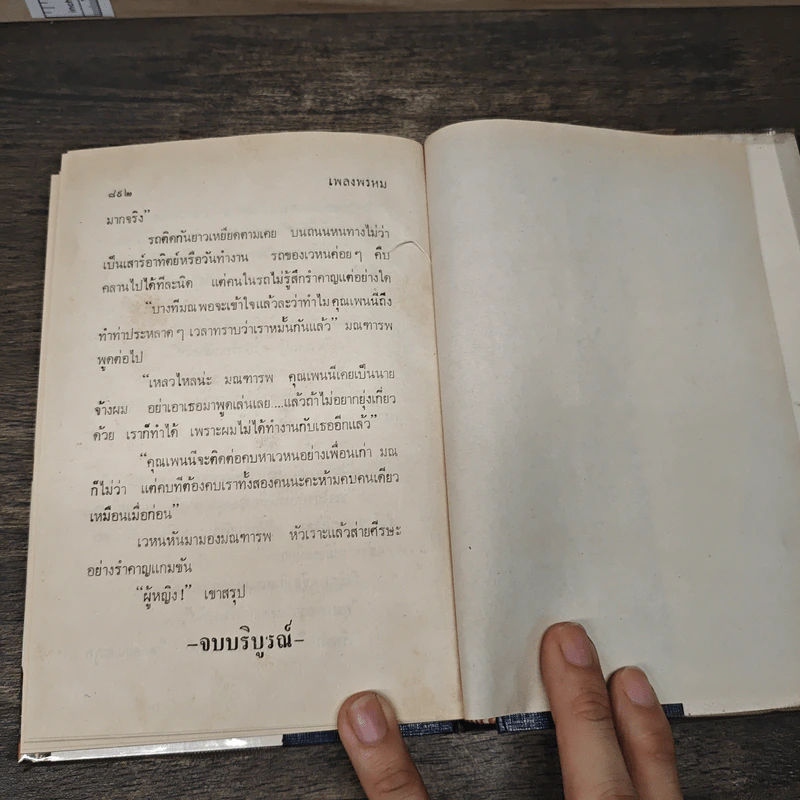 ๘๙๒ เพลงพรหม
มากจริง”
รถติดกันยาวเหยียดตามเคย บนถนนหนทางไม่ว่า
เป็นเสาร์อาทิตย์หรือวันทำงาน รถของเวหนค่อยๆ คืบ
คลานไปได้ทีละนิด แต่คนในรถไม่รู้สึกรำคาญแต่อย่างใด
“บางทีมณพอจะเข้าใจแล้วละว่าทำไมคุณเพนนีถึง
ทำท่าประหลาดๆ เวลาทราบว่าเราหมั้นกันแล้ว” มณฑารพ
พูดต่อไป
“เหลวไหลน่ะ มณฑารพ คุณเพนนีเคยเป็นนาย
จ้างผม อย่าเอาเธอมาพูดเล่นเลย....แล้วถ้าไม่อยากยุ่งเกี่ยว
ด้วย เราก็ทำได้ เพราะผมไม่ได้ทำงานกับเธออีกแล้ว”
“คุณเพนนีจะติดต่อคบหาเวหนอย่างเพื่อนเก่า มณ
ก็ไม่ว่า แต่คบทีต้องคบเราทั้งสองคนนะคะห้ามคบคนเดียว
เหมือนเมื่อก่อน”
เวหนหันมามองมณฑารพ หัวเราะแล้วส่ายศีรษะ
อย่างรำคาญแกมขัน
“ผู้หญิง!” เขาสรุป
–จบบริบูรณ์–